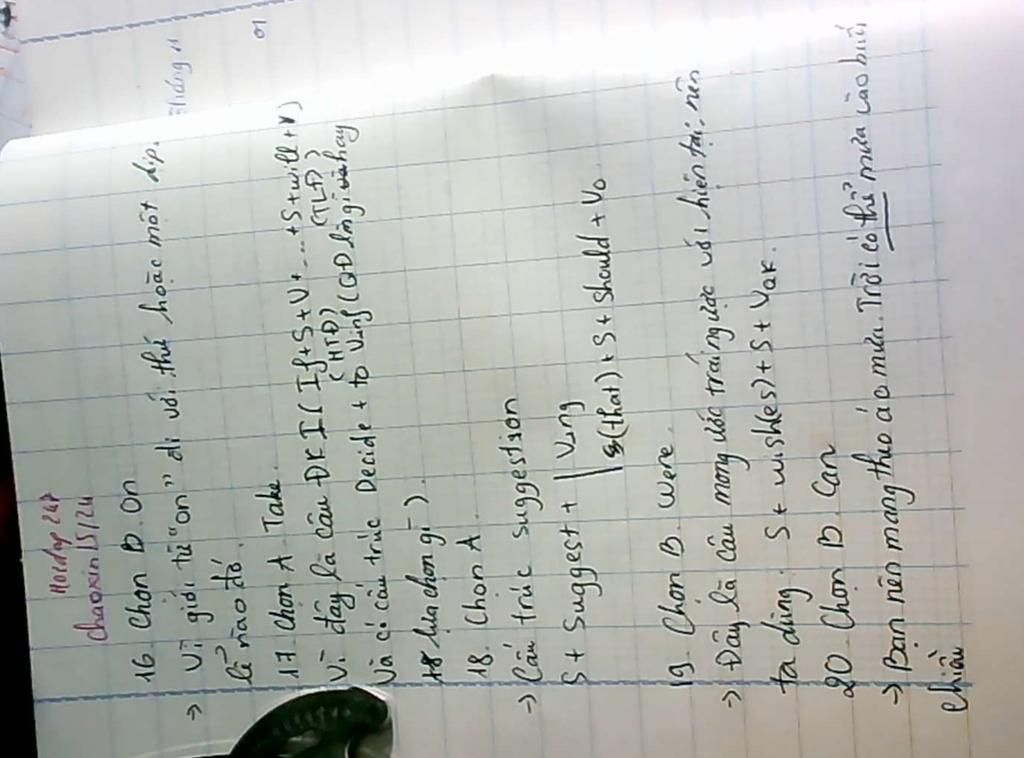 Hoidap 247
chaoxin1524
16. Chọn B. On
→ Vì giới từ "on" đi với thứ hoặc một dịp
lễ nào đó.
17. chọn A. Take.
Vì đây là câu ĐK I ( If + S + V + ... + S + will + V)
(HTĐ) (TLĐ)
Và có cấu trúc Decide + to Ving (QĐ làm gì hay
lựa chọn gì).
18. Chọn A
→ Cấu trúc suggestion
S + suggest + | Ving
(that) + S + should + Vo
19. Chọn B. Were.
→ Đây là câu mong ước trái ngược với hiện tại nên
ta dùng: S + wish(es) + S + VQK.
20. Chọn D. Can
→ Bạn nên mang theo áo mưa. Trời có thể mưa vào buổi
chiều
Tháng 11
01